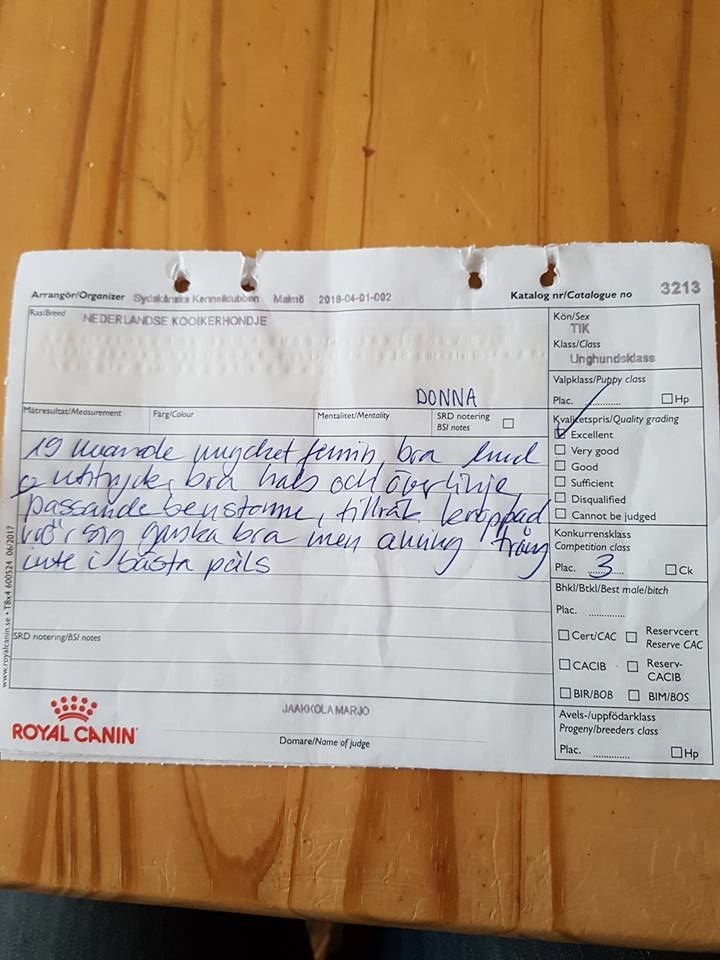 Arrangör/Organizer Sydskånska Kennelklubben Malmö 2018-04-01-002 Katalog nr/Catalogue no 3213
Ras/Breed NEDERLANDSE KOOIKERHONDJE
DONNA
Mätresultat/Measurement Färg/Colour Mentalitet/Mentality SRD notering
BSI notes
19 mnande mycket feminin, bra hud
uttryck, bra hals och överlinje
passande benstomme, tillräk kroppad
rör sig ganska bra men aning trång
inte i bästa päls
SRD notering/BSI notes
www.royalcanin.se • T8x4 600524 06/2017
ROYAL CANIN
JAAKKOLA MARJO
Domare/Name of judge
Kön/Sex
TIK
Klass/Class
Unghundsklass
Valpklass/Puppy class
Plac. ............ Hp
Kvalitetspris/Quality grading
Excellent
Very good
Good
Sufficient
Disqualified
Cannot be judged
Konkurrensklass
Competition class
Plac. 3 Ck
Bhkl/Btkl/Best male/bitch
Plac. ............
Cert/CAC Reservcert
Reserve CAC
CACIB Reserv-
CACIB
BIR/BOB BIM/BOS
Avels-/uppfödarklass
Progeny/breeders class
Plac. ............ Hp